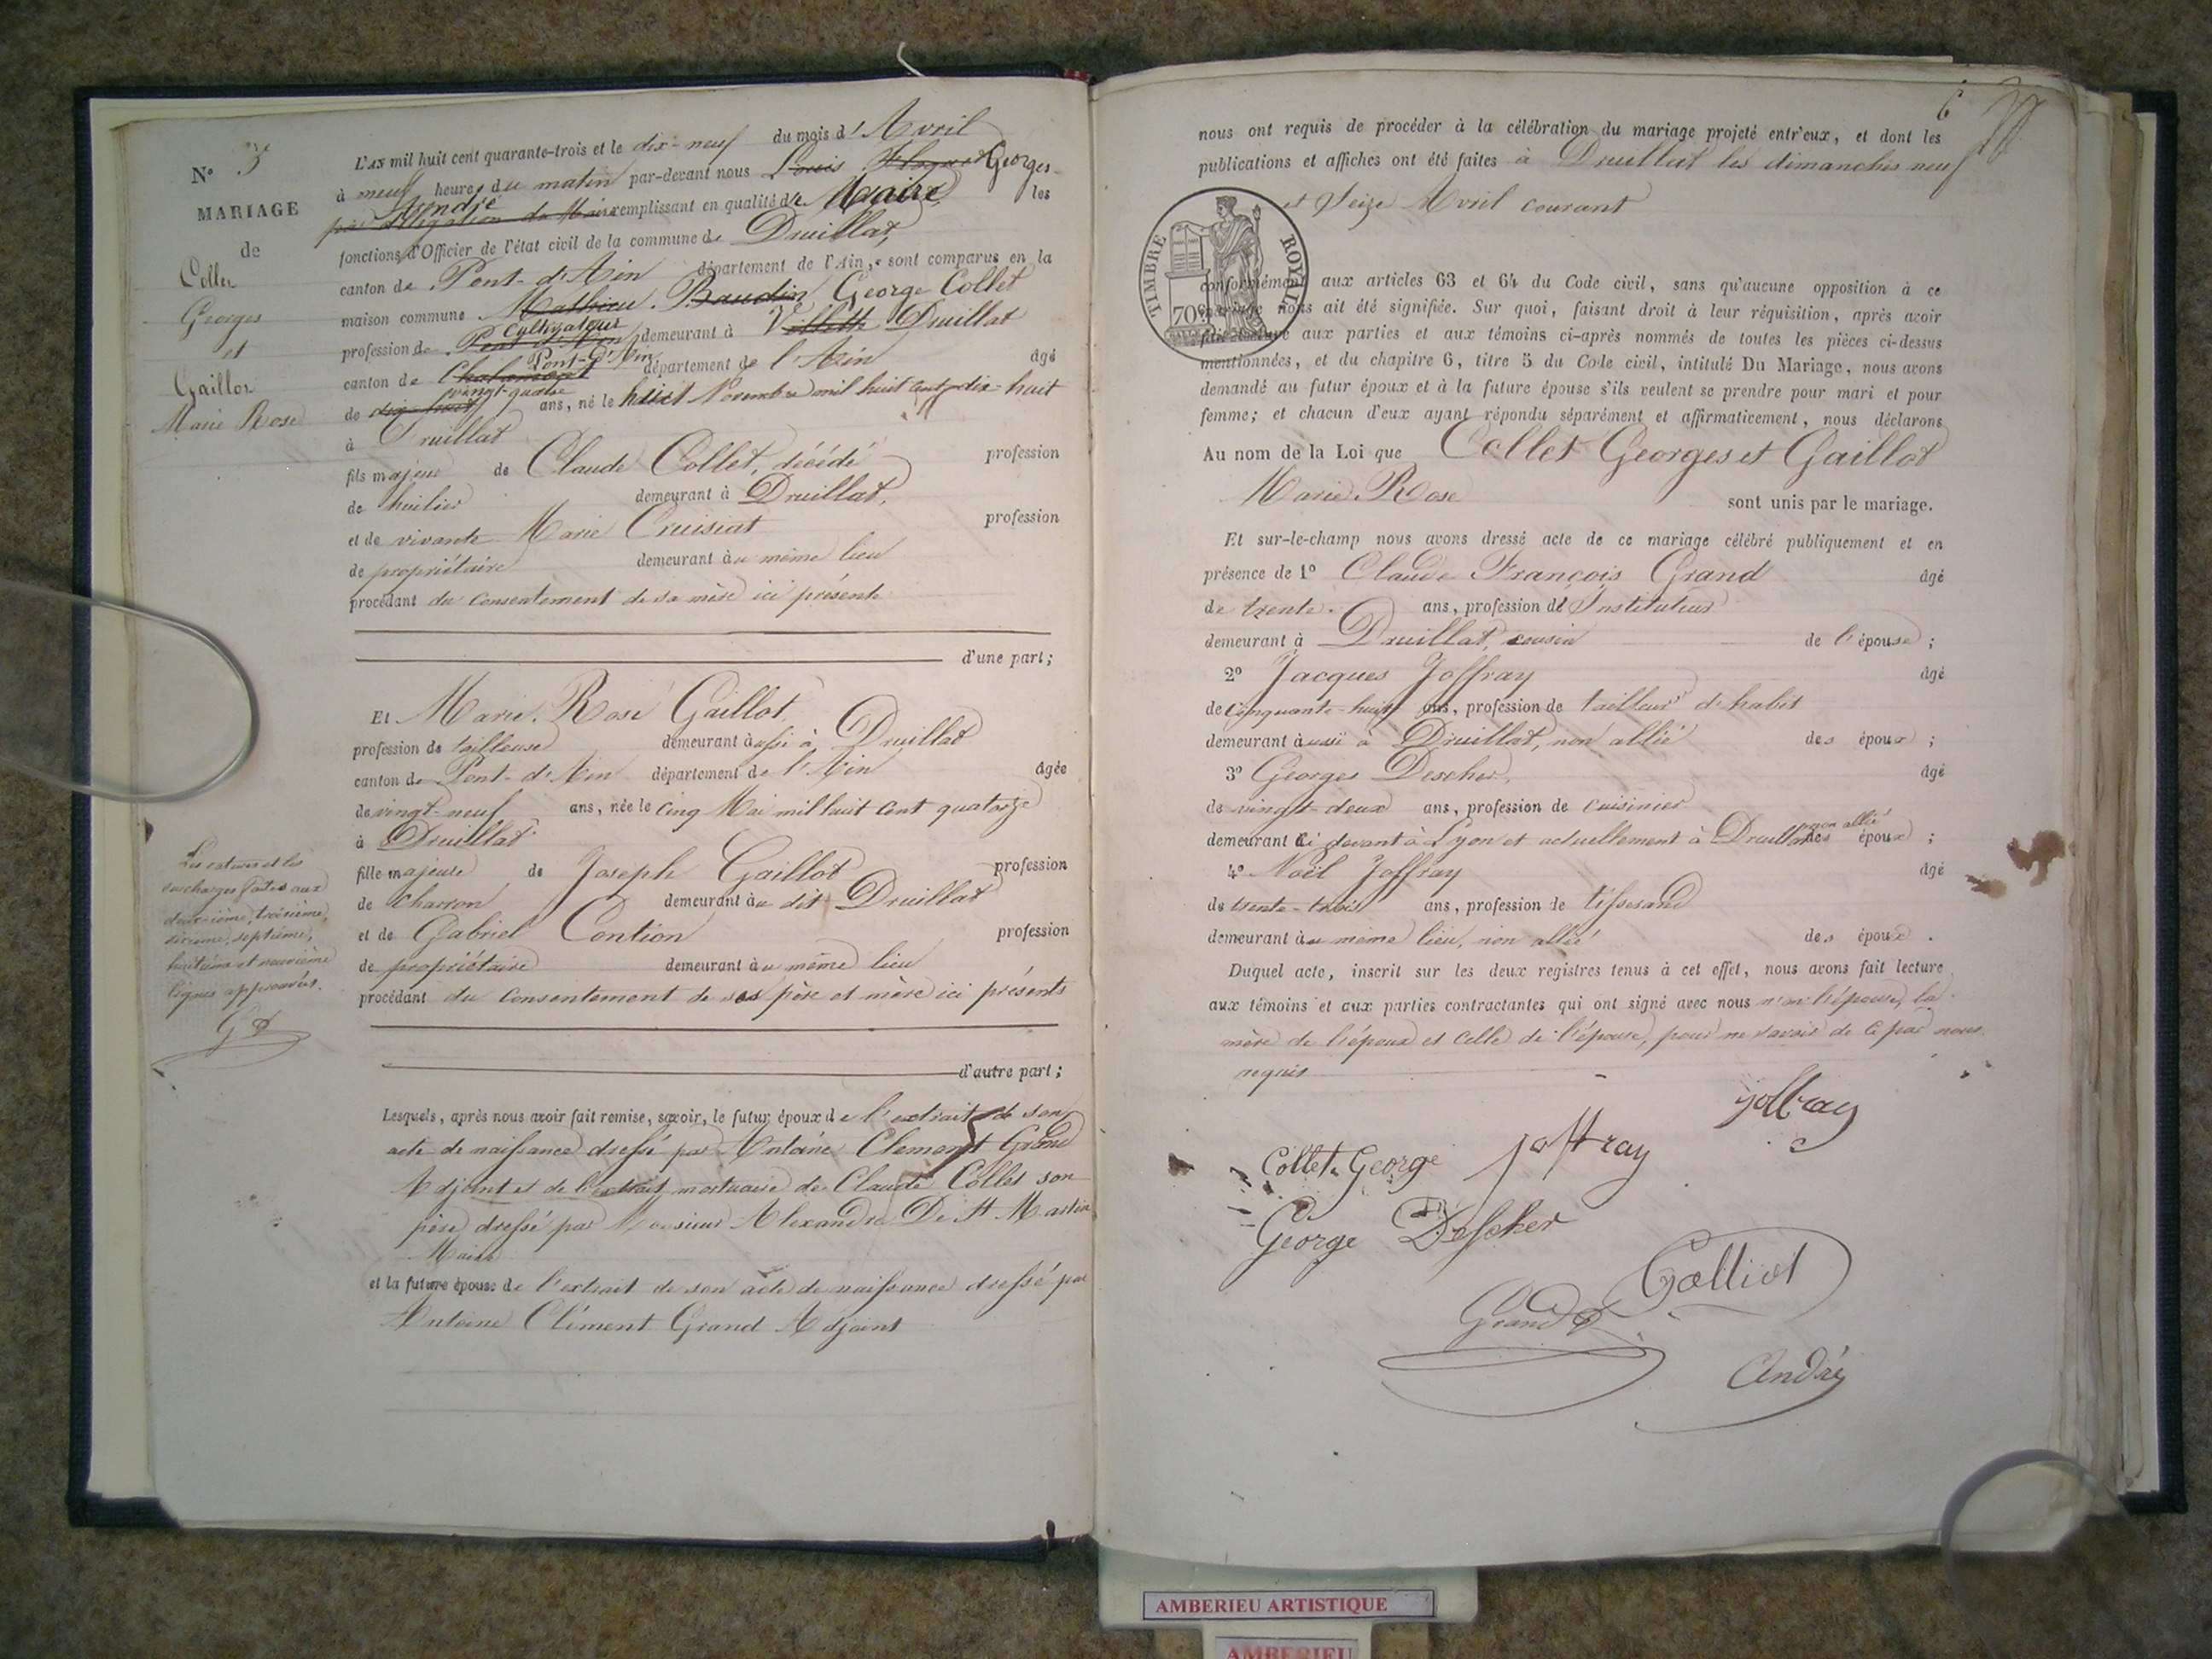 N° 3
MARIAGE
de
Collet
Georges
et
Gaillot
Marie Rose
L'AN mil huit cent quarante-trois et le dix-neuf du mois d'Avril
à neuf heures du matin par-devant nous Louis Georges
Grandjé
par délégation du Maire remplissant en qualité de Maire les
fonctions d'Officier de l'état civil de la commune de Druillat,
canton de Pont-d'Ain département de l'Ain, sont comparus en la
maison commune Mathieu Baudin George Collet
Cultivateur
profession de Pont-d'Ain demeurant à Villette Druillat
Pont-d'Ain
canton de Chalamont département de l'Ain âgé
vingt-quatre
de dix-huit ans, né le huit Novembre mil huit cent dix-huit
à Druillat
fils majeur de Claude Collet, décédé profession
de huilier demeurant à Druillat,
et de vivante Marie Cruisiat profession
de propriétaire demeurant au même lieu
procédant du consentement de sa mère ici présente
d'une part;
Et Marie Rose Gaillot
profession de tailleuse demeurant aussi à Druillat
canton de Pont-d'Ain département de l'Ain âgée
de vingt-neuf ans, née le cinq Mai mil huit cent quatorze
à Druillat
fille majeure de Joseph Gaillot profession
de charron demeurant au dit Druillat
et de Gabriel Contion profession
de propriétaire demeurant au même lieu
procédant du consentement de ses père et mère ici présents
d'autre part;
Les ratures et les
surcharges faites aux
deuxième, troisième,
sixième, septième,
huitième et neuvième
lignes approuvées.
Lesquels, après nous avoir fait remise, savoir, le futur époux de l'extrait de son
acte de naissance dressé par Antoine Clement Grand
Adjoint et de l'extrait mortuaire de Claude Collet son
père dressé par Monsieur Alexandre De St Martin
Maire
et la future épouse de l'extrait de son acte de naissance dressé par
Antoine Clément Grand Adjoint
6
nous ont requis de procéder à la célébration du mariage projeté entr'eux, et dont les
publications et affiches ont été faites à Druillat les dimanches neuf
et Seize Avril courant
TIMBRE ROYAL
70
conformément aux articles 63 et 64 du Code civil, sans qu'aucune opposition à ce
mariage nous ait été signifiée. Sur quoi, faisant droit à leur réquisition, après avoir
fait lecture aux parties et aux témoins ci-après nommés de toutes les pièces ci-dessus
mentionnées, et du chapitre 6, titre 5 du Code civil, intitulé Du Mariage, nous avons
demandé au futur époux et à la future épouse s'ils veulent se prendre pour mari et pour
femme; et chacun d'eux ayant répondu séparément et affirmativement, nous déclarons
Au nom de la Loi que Collet Georges et Gaillot
Marie Rose sont unis par le mariage.
Et sur-le-champ nous avons dressé acte de ce mariage célébré publiquement et en
présence de 1° Claude François Grand âgé
de trente ans, profession d'Instituteur
demeurant à Druillat, cousin de l'épouse;
2° Jacques Joffray âgé
de cinquante-huit ans, profession de tailleur d'habit
demeurant aussi à Druillat, non allié des époux;
3° Georges Descher, âgé
de vingt-deux ans, profession de cuisinier
non allié
demeurant ci devant à Lyon et actuellement à Druillat des époux;
4° Noël Joffray âgé
de trente-trois ans, profession de tisserand
demeurant au même lieu, non allié des époux.
Duquel acte, inscrit sur les deux registres tenus à cet effet, nous avons fait lecture
aux témoins et aux parties contractantes qui ont signé avec nous non l'épouse, la
mère de l'époux et celle de l'épouse, pour ne savoir de ce par nous
requis
Joffray
Collet George Joffray
George Descher
Galliot
Grand
André
AMBERIEU ARTISTIQUE
AMBERIEU